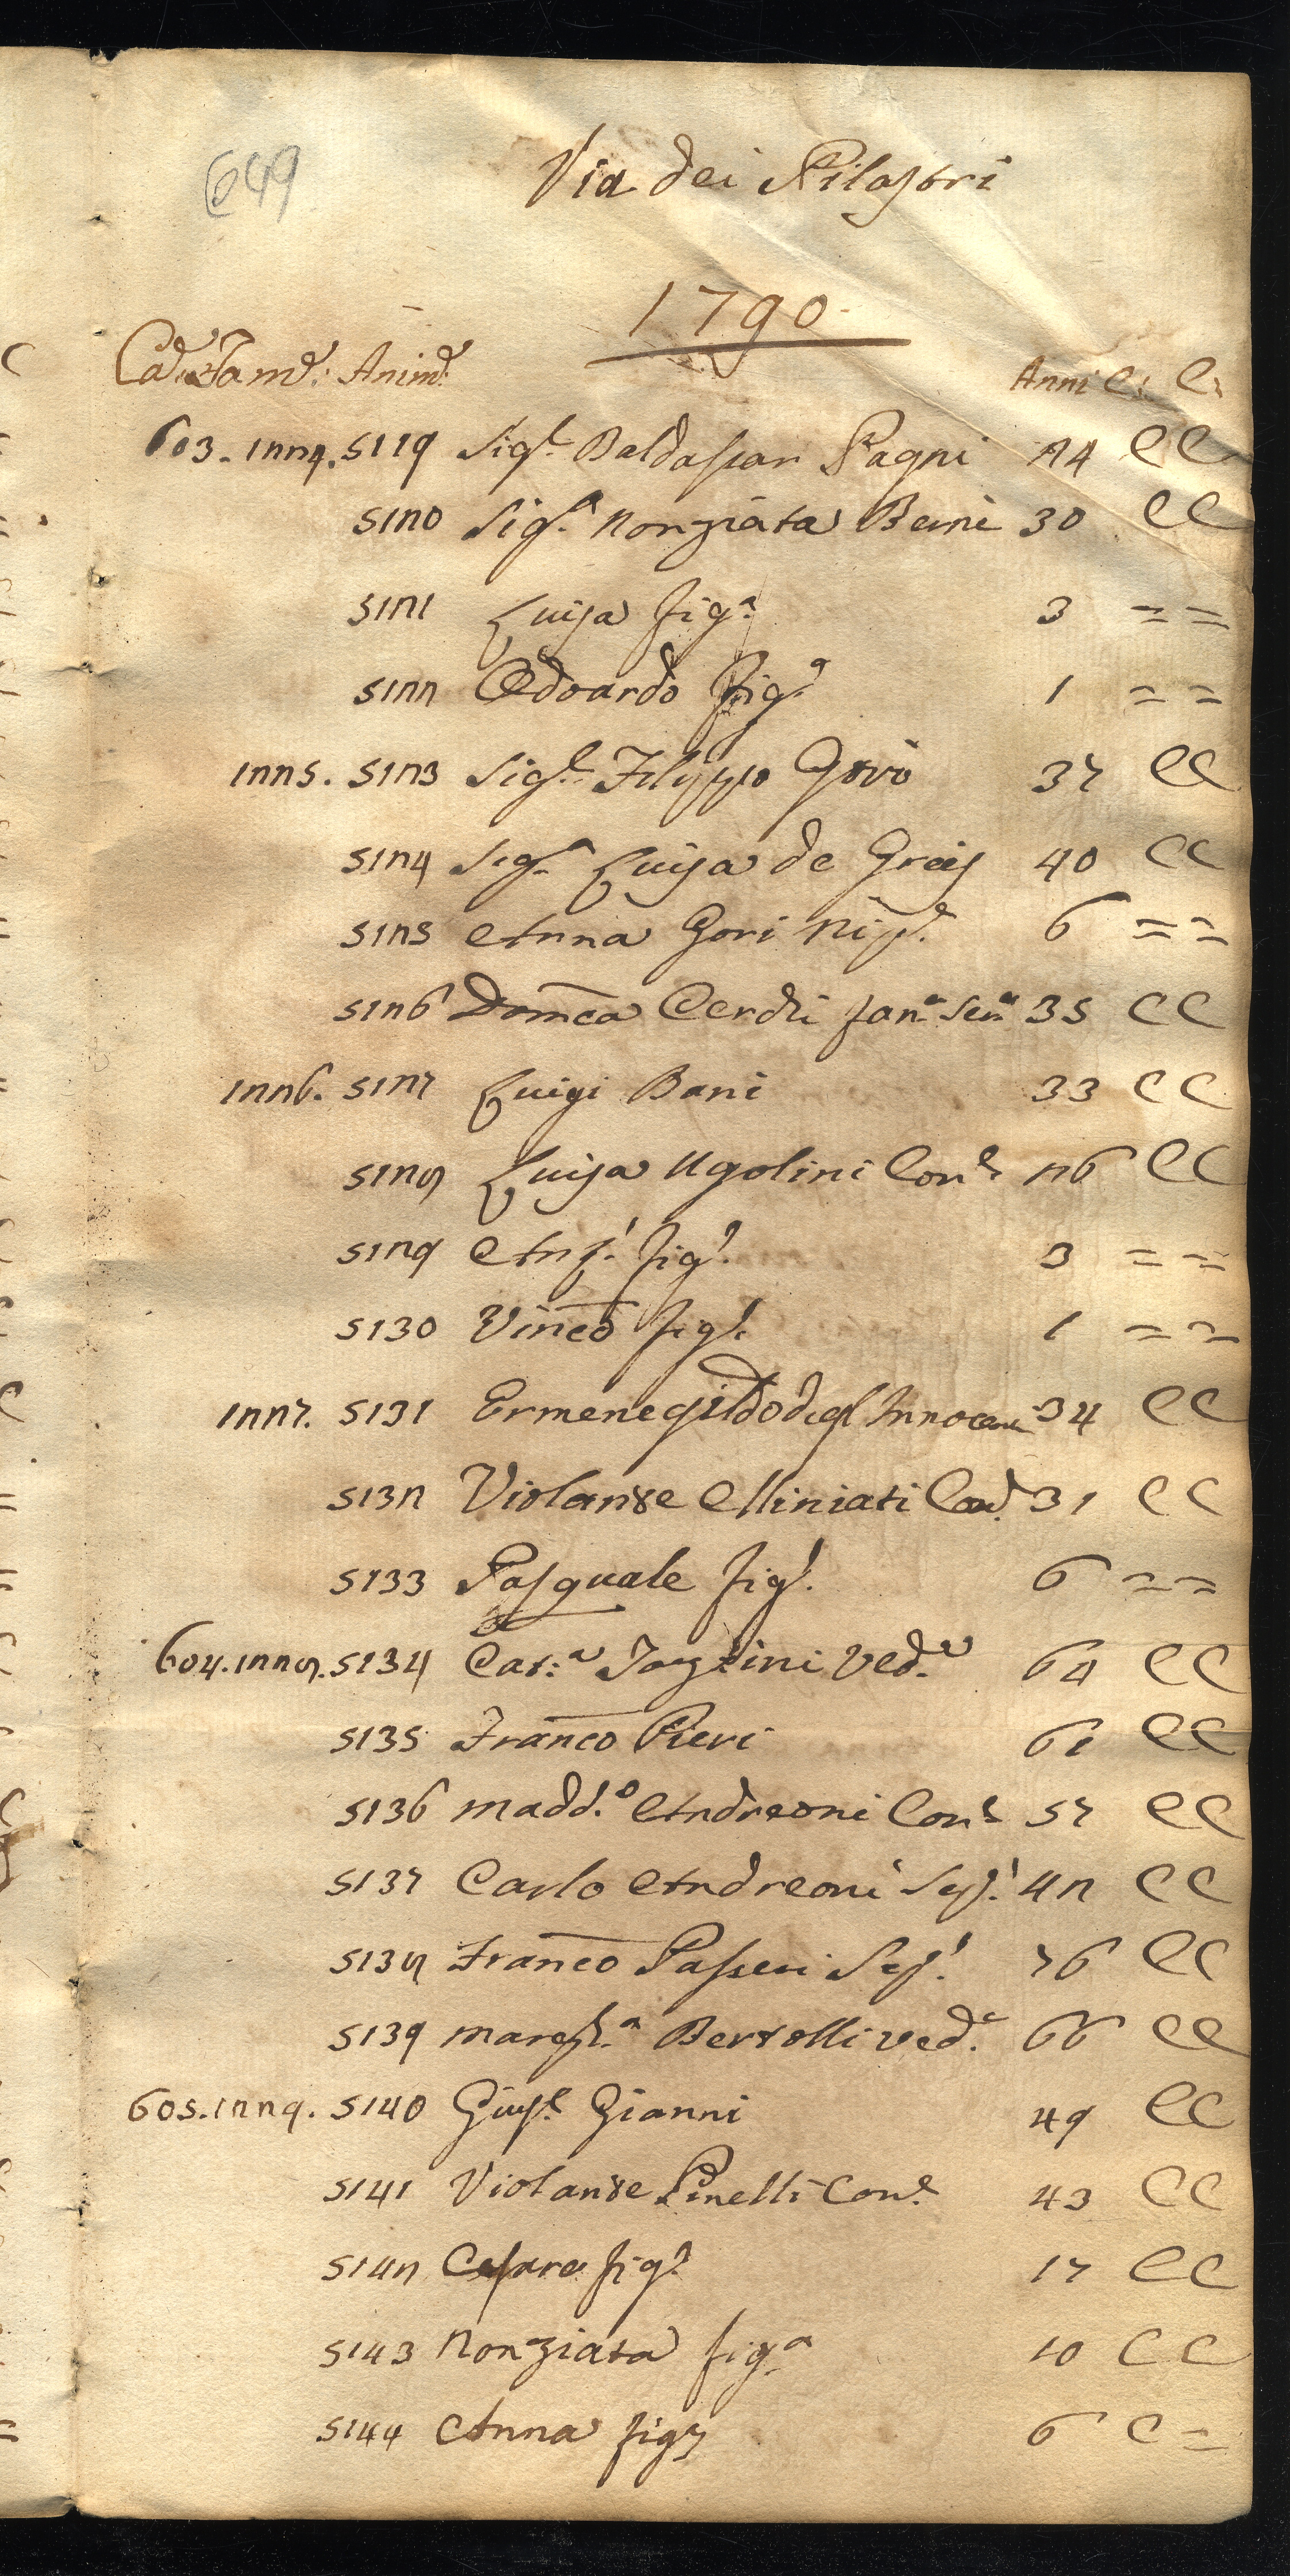 649
Via dei Pilastri
1790
Case. Fam.e: Anime: Anni C: C:
603. 1224. 5119 Sig.r Baldassar Pagni 24 C C
5120 Sig.a Nonziata Beini 30 C C
5121 Luisa fig.a 3 = =
5122 Edoardo fig.o 1 = =
1225. 5123 Sig.r Filippo Gori 37 C C
5124 Sig.a Luisa de Greis 40 C C
5125 Anna Gori Nip.e 6 = =
5126 Domca Cerchi 35 C C
1226. 5127 Luigi Bani 33 C C
5128 Luisa Ugolini Con.e 26 C C
5129 Ant.o fig.o 3 = =
5130 Vinco fig.o 1 = =
1227. 5131 Ermenegildo degl'Innocenti 34 C C
5132 Violante Miniati Con.e 31 C C
5133 Pasquale fig.o 6 = =
604. 1228. 5134 Cat.a Ved.a 64 C C
5135 Franco Pieri 61 C C
5136 Madd.a Andreoni Con.e 57 C C
5137 Carlo Andreoni 42 C C
5138 Franco Passeri 76 C C
5139 Margh.a Bertolli ved.a 66 C C
605. 1229. 5140 Gius.e Gianni 49 C C
5141 Violante Pinelli Con.e 43 C C
5142 Cesare fig.o 17 C C
5143 Nonziata fig.a 10 C C
5144 Anna fig.a 6 C =